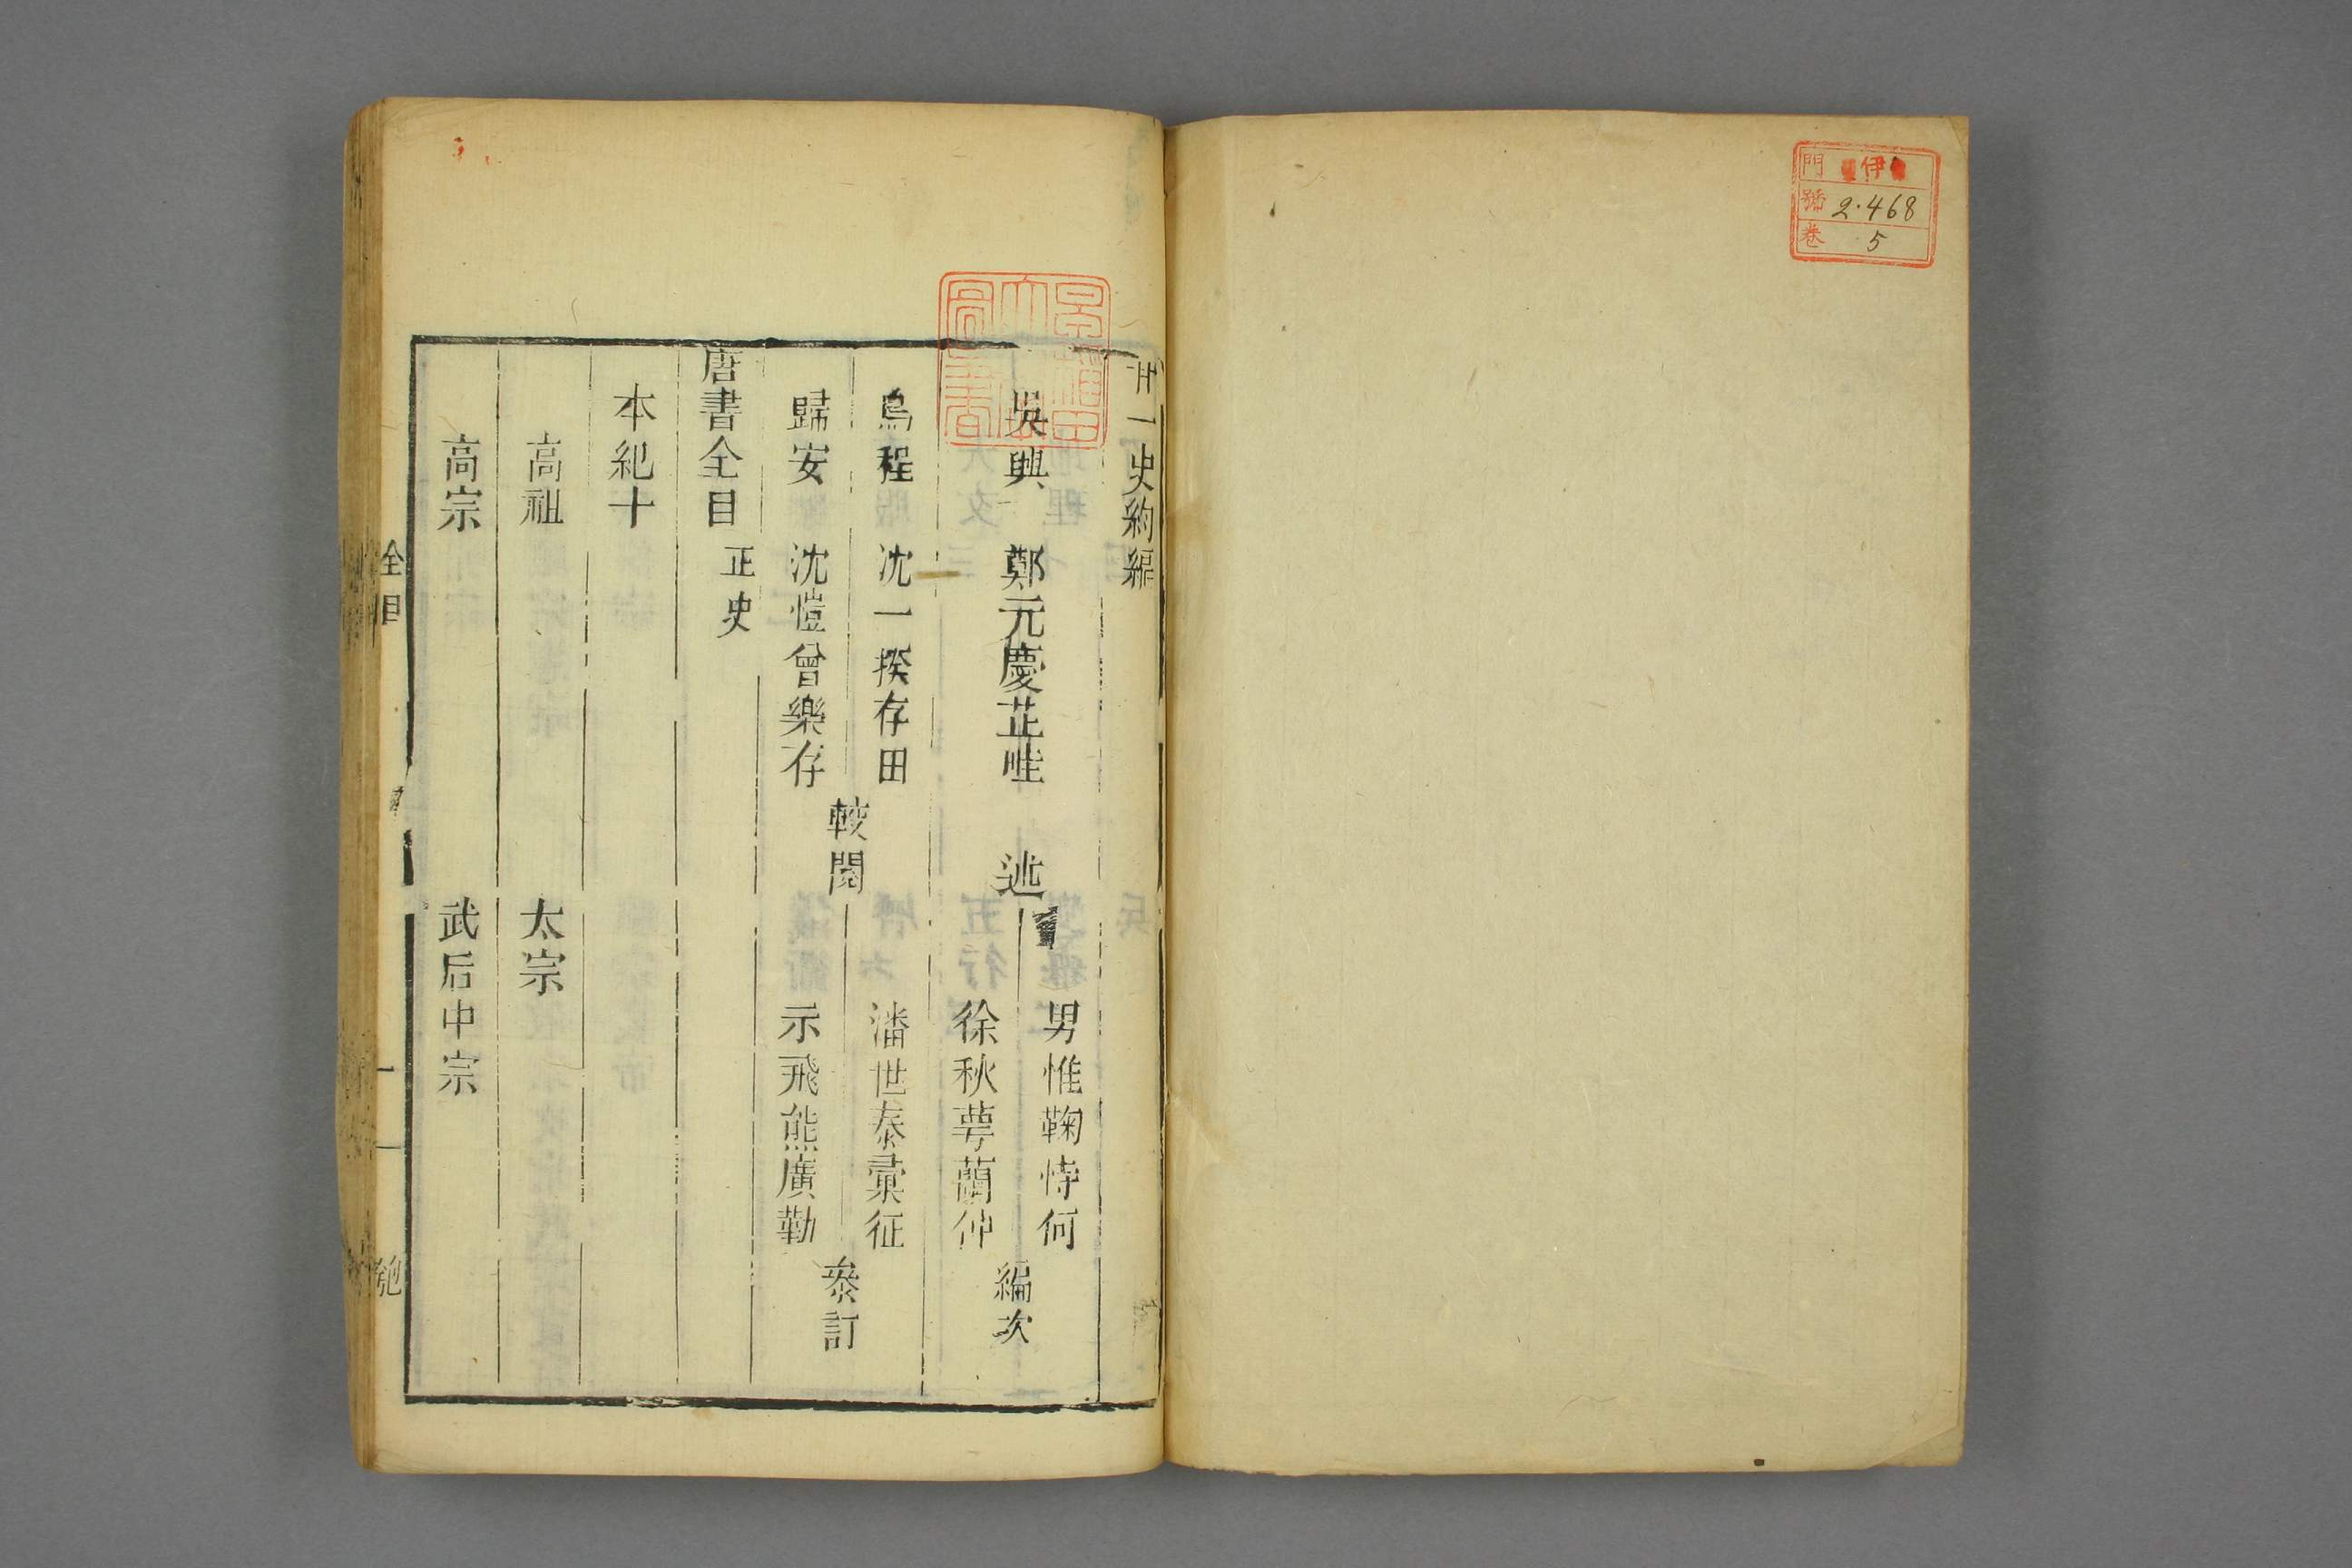 門 伊
號 2·468
卷 5
廿一史約編
吳興 鄭元慶芷畦 述
男惟鞠恃何
徐秋蕚蘭仲
編次
烏程 沈一揆存田
歸安 沈愷曾樂存
較閱
潘世泰彙征
示飛熊廣勤
叅訂
唐書全目 正史
本紀十
高祖 太宗
高宗 武后中宗
全目 一 匏